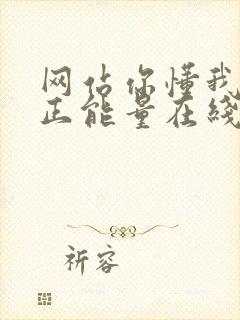 网估你懂我
正能量在线
祈容